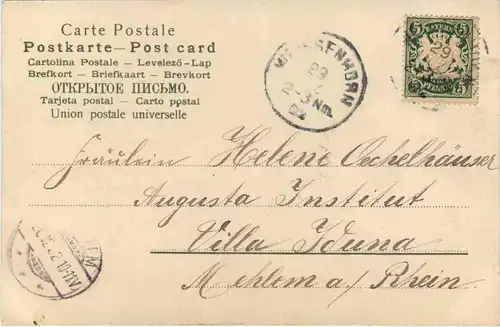 Carte Postale
Postkarte — Post card
Cartolina Postale — Levelező-Lap
Brefkort — Briefkaart — Brevkort
ОТКРЫТОЕ ПИСЬМО.
Tarjeta postal — Carto postal
Union postale universelle
WEISSENHORN
29
2-3 Nm.
02
BAYERN
5 5
PFENNIG
Fräulein Helene Oechelhäuser
Augusta Institut
Villa Iduna
Mehlem a/ Rhein.